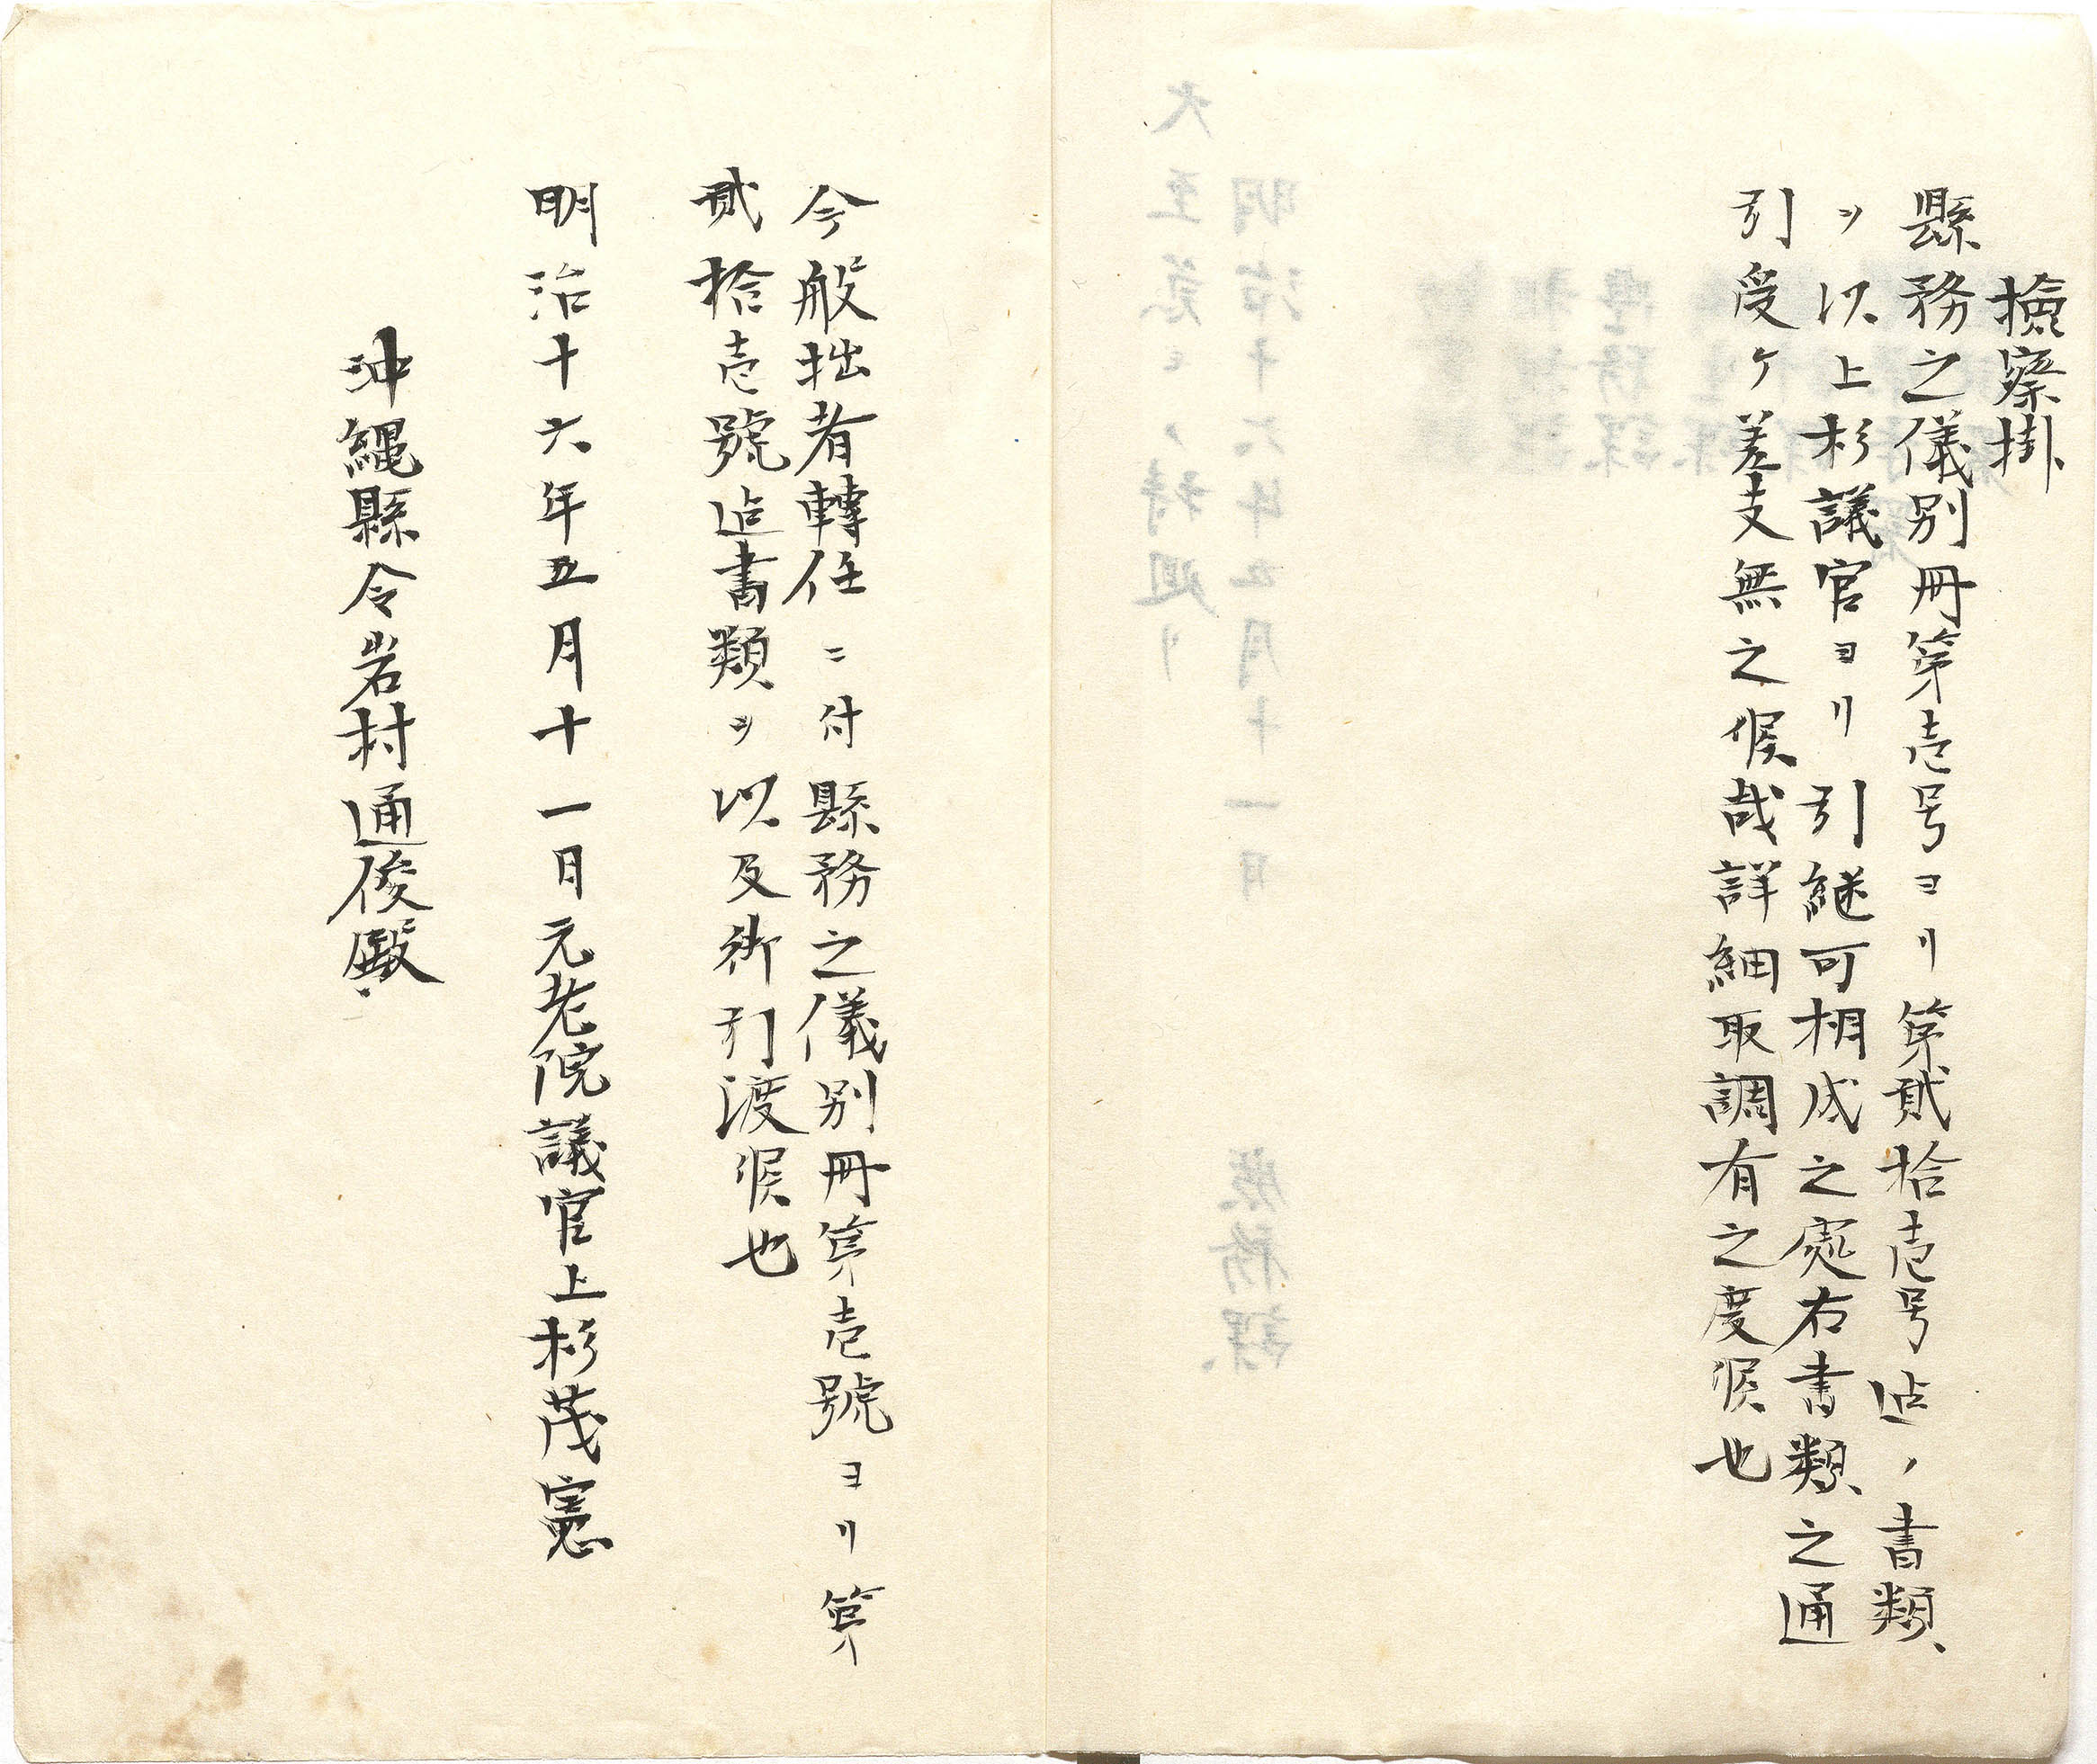 撿察掛
縣務之儀別冊第壱号ヨリ第貳拾壱号迠ノ書類
ヲ以上杉議官ヨリ引継可相成之處右書類之通
引受ケ差支無之候哉詳細取調有之度候也
今般拙者轉任ニ付縣務之儀別冊第壱號ヨリ第
貳拾壱號迠書類ヲ以及御引渡候也
明治十六年五月十一日元老院議官上杉茂憲
沖縄縣令岩村通俊殿